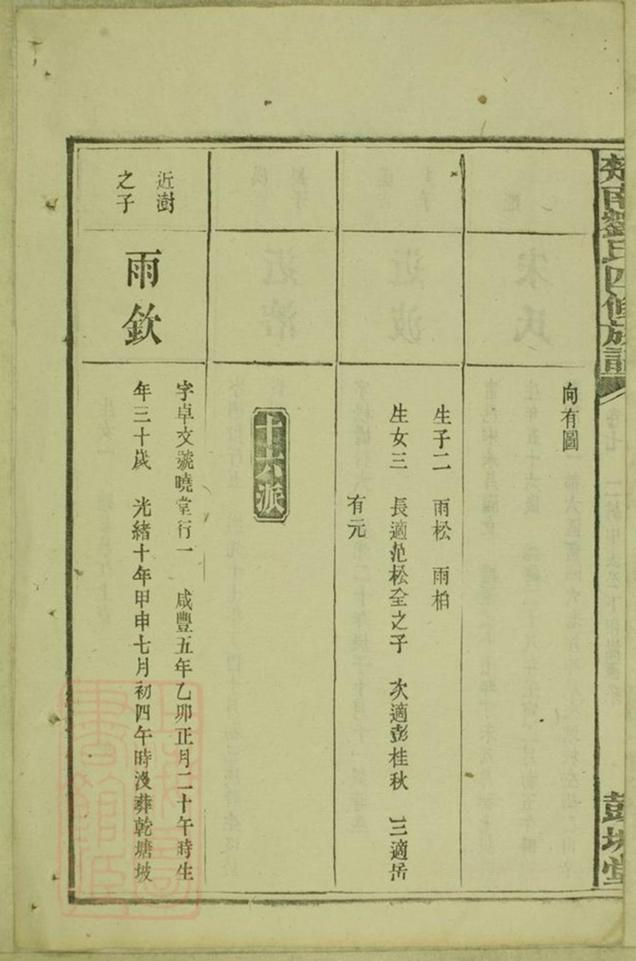 劉氏四修族譜
彭城堂
向有圖
生子二 雨松 雨柏
生女三 長適范松全之子 次適彭桂秋 三適岳
有元
十六派
近澍
之子
雨欽
字卓文號曉堂行一 咸豐五年乙卯正月二十午時生
年三十歲 光緒十年甲申七月初四午時沒葬乾塘坡